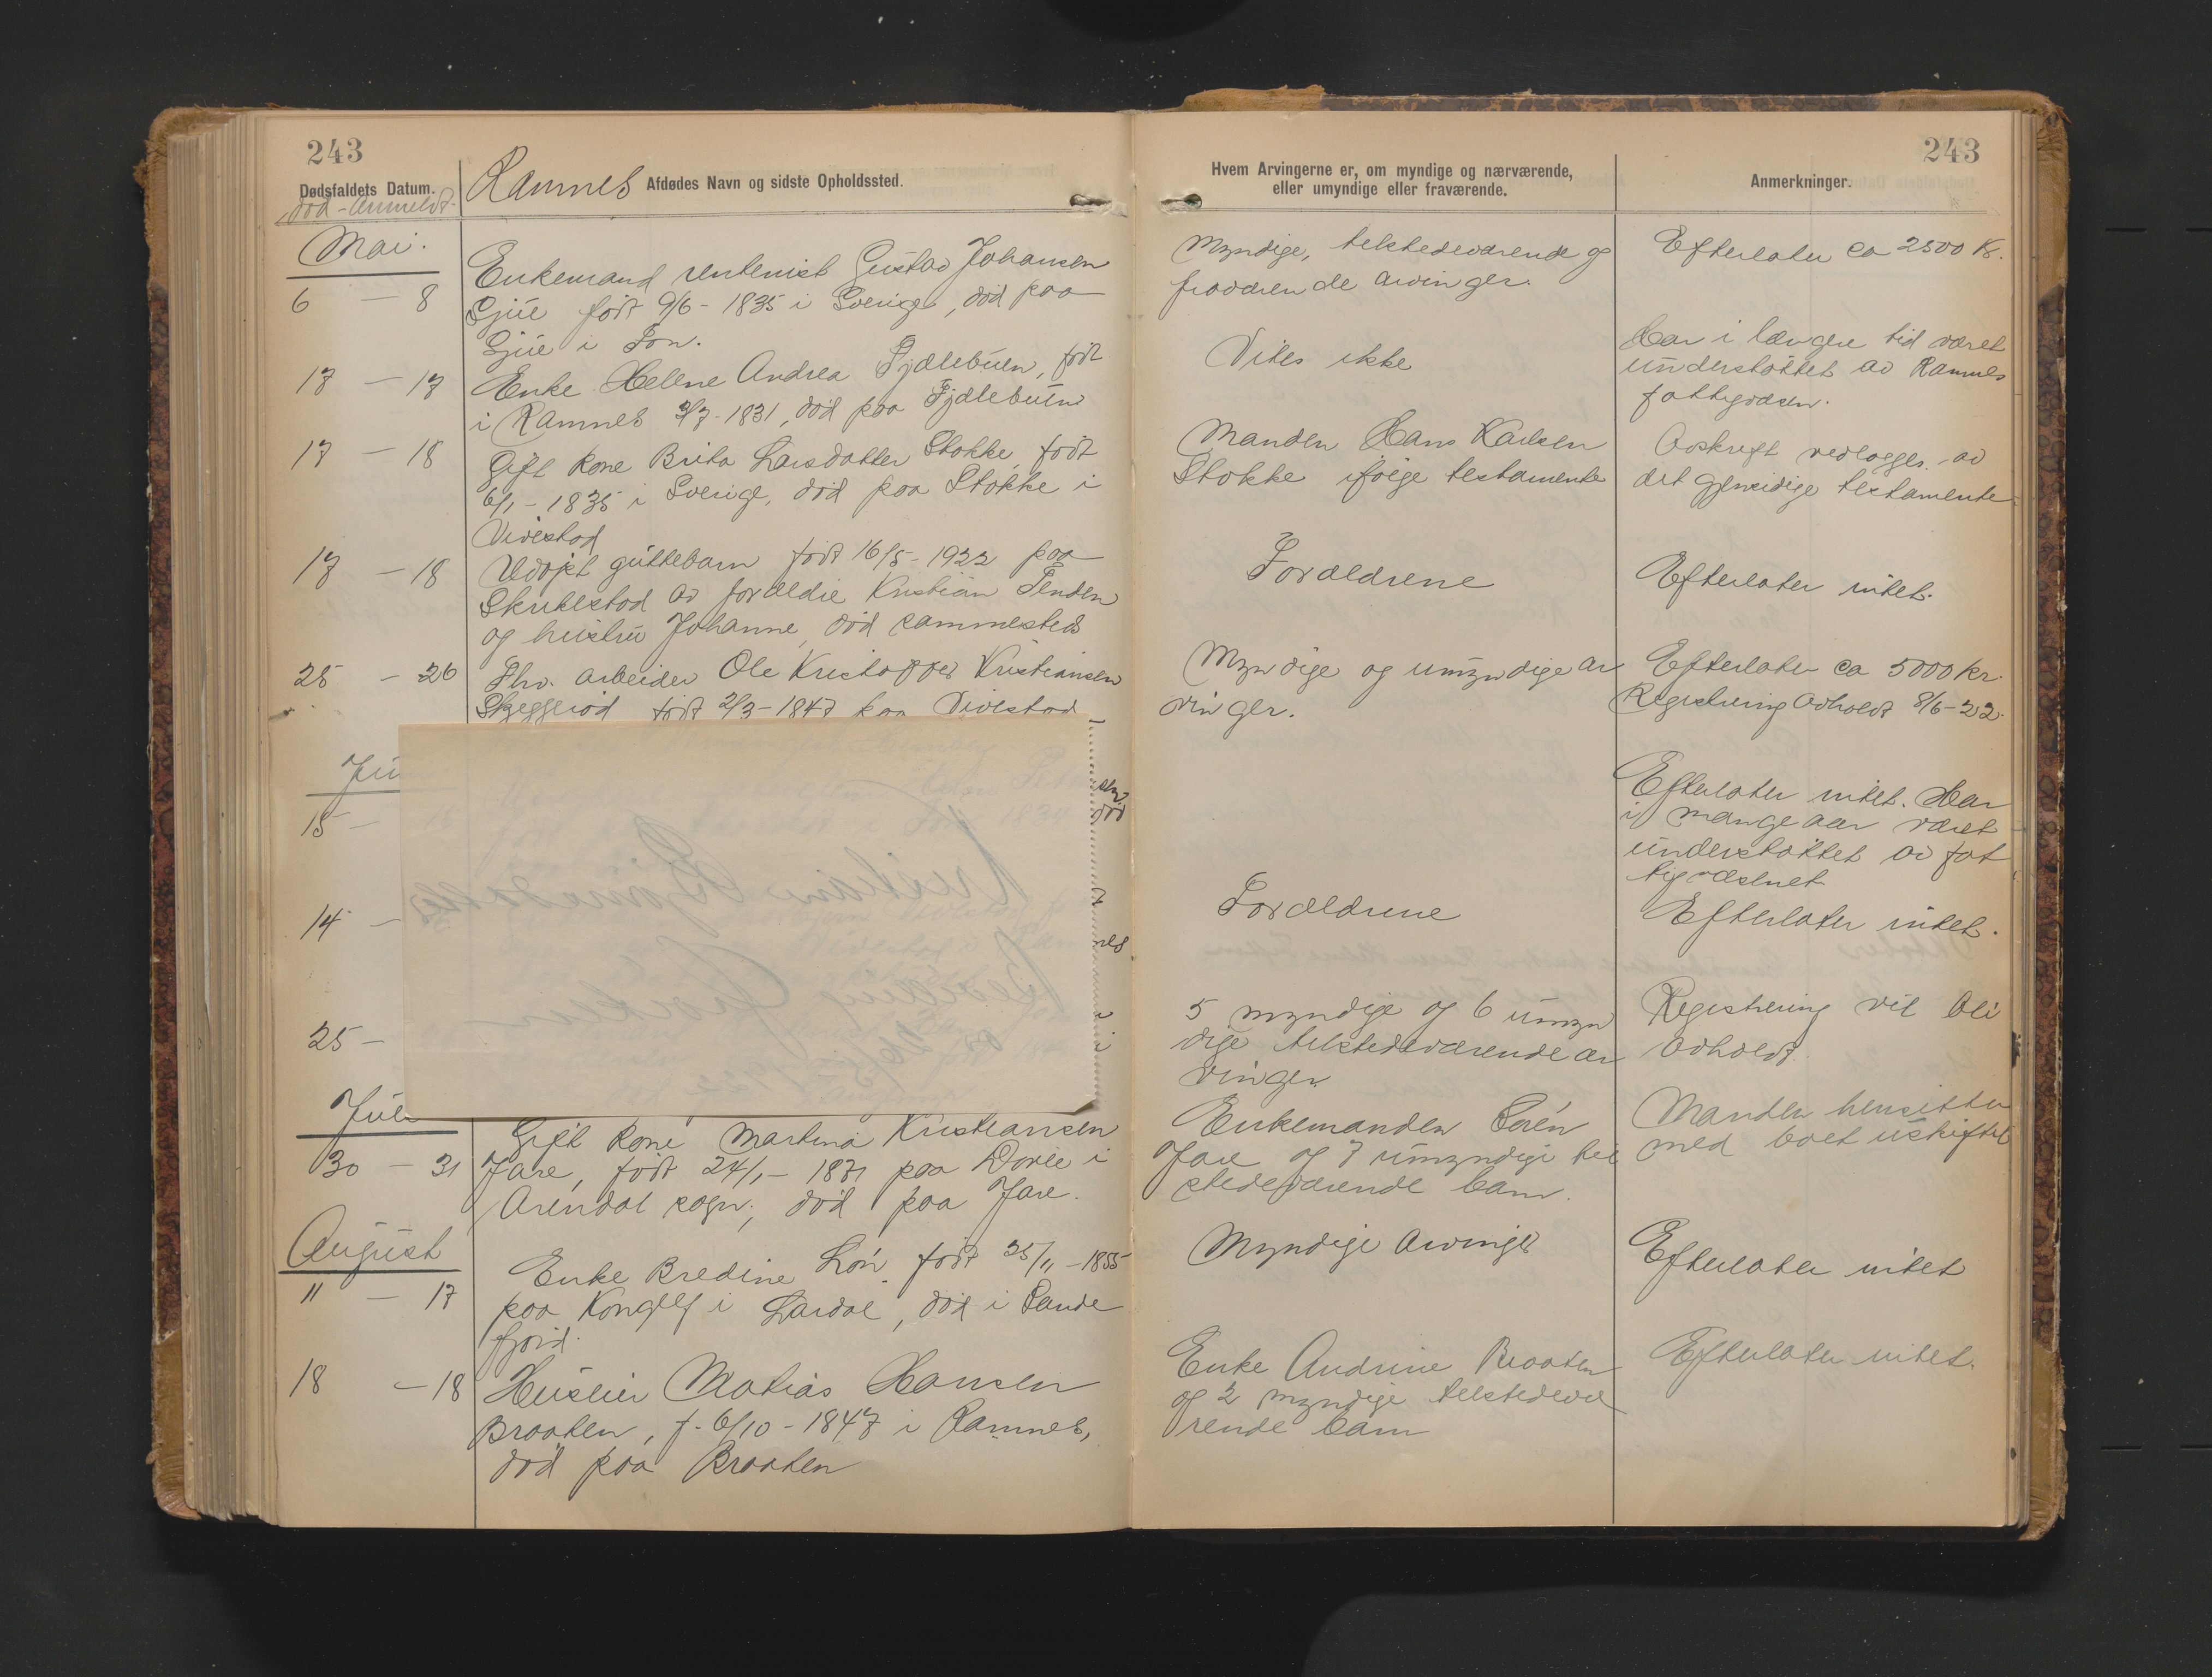 243
Dødsfaldets Datum.
død - Anmeldt.
Ramnes Afdødes Navn og sidste Opholdssted.
Mai.
6 — 8
Enkemand rentenist Gustav Johansen
Gjüe født 9/6 - 1835 i Sverige, död paa
Gjüe i Fon.
17 — 17
Enke Helene Andrea Fjælebüen, födt
i Ramnes 3/7 - 1831, död paa Fjælebüen
17 — 18
Gift kone Brita Larsdatter Stokke, födt
6/1 - 1835 i Sverige, död paa Stokke i
Vivestad
17 — 18
Udöpt güttebarn födt 16/5 - 1922 paa
av forældre Kristian
og hüstrü Johanne, död sammesteds
25 — 26
Fhv. arbeider Ole Kristoffer Kristiansen
Skjeggerød födt 2/3 - 1847 paa Vivestad
Jü
15 —
14 —
25 —
Jüli
30 — 31
Gift kone Martina Kristiansen
Jare, födt 24/1 - 1871 paa i
Arendal sogn, död paa Jare.
August
11 — 17
Enke Bredine Lön födt 25/11 - 1855
paa i Lardal, död i Sande
fjord.
18 — 18
Hüseier Matias Hansen
Braaten, f. 6/10 - 1847 i Ramnes,
död paa Braaten
243
Hvem Arvingerne er, om myndige og nærværende,
eller umyndige eller fraværende.
Anmerkninger.
Myndige, tilstedeværende og
fraværende arvinger.
Efterlater ca 2500 Kr.
Vites ikke
Har i længere tid været
ünderstöttet av Ramnes
fattigvæsen.
Manden Hans Karlsen
Stokke ifölge testamente
Avskrift vedlægges av
det gjensidige testamente
Forældrene
Efterlater intet.
Myndige og umyndige ar
vinger.
Efterlater ca 5000 kr.
Registrering avholdt 8/6 - 22.
Efterlater intet. Har
i mange aar været
ünderstöttet av fat
tigvæsenet
Forældrene
Efterlater intet.
5 myndige og 6 ümyn
dige tilstedeværende ar
vinger
Registrering vil bli
avholdt.
Enkemanden Sören
Jare og 7 ümyndige til
stedeværende barn.
Manden hensitter
med boet üskiftet
Myndige arvinger
Efterlater intet
Enke Andrine Braaten
og 2 myndige tilstedevæ
rende barn
Efterlater intet.